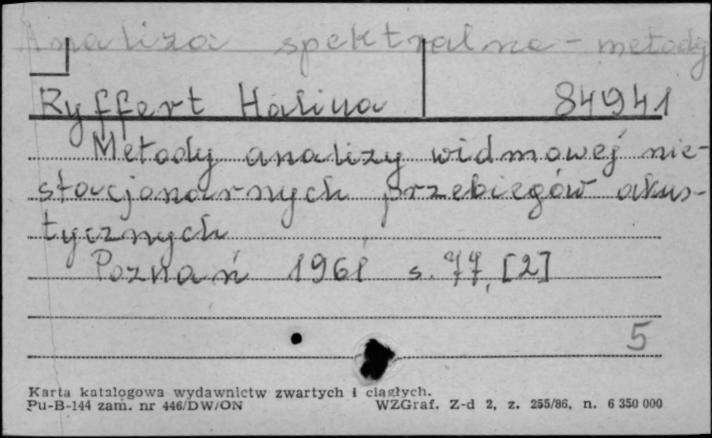 Analiza spektralna - metody
Ryffert Halina 84941
Metody analizy widmowej nie-
stacjonarnych przebiegów akus-
tycznych
Poznań 1961 s. 77, [2]
5
Karta katalogowa wydawnictw zwartych i ciągłych.
Pu-B-144 zam. nr 446/DW/ON WZGraf. Z-d 2, z. 255/86, n. 6 350 000